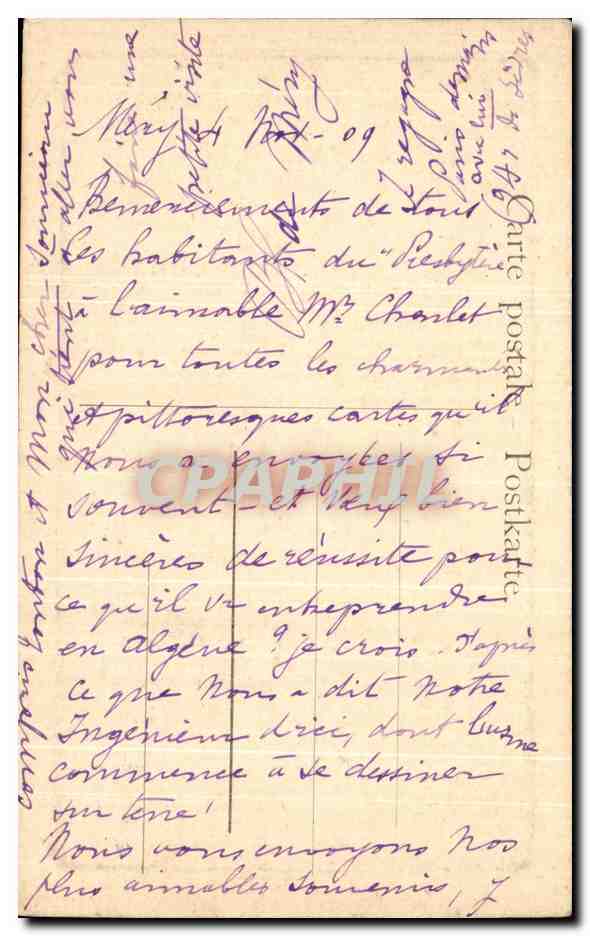 Méry 4 Nov - 09
Remerciements de tous
les habitants du "Presbytère
à l'aimable Mr Chenlet
pour toutes les charmantes
et pittoresques cartes qu'il
nous a envoyées si
souvent - et vœux bien
sincères de réussite pour
ce qu'il va entreprendre
en Algérie ? je crois. d'après
ce que nous a dit notre
Ingénieur d'ici, dont l'usine
commence à se dessiner
sur terre !
Nous vous envoyons nos
plus aimables souvenirs, J
une
petite visite
avec lui
aller vous
qui vient
mon cher
Carte postale - Postkarte.
CPAPHIL